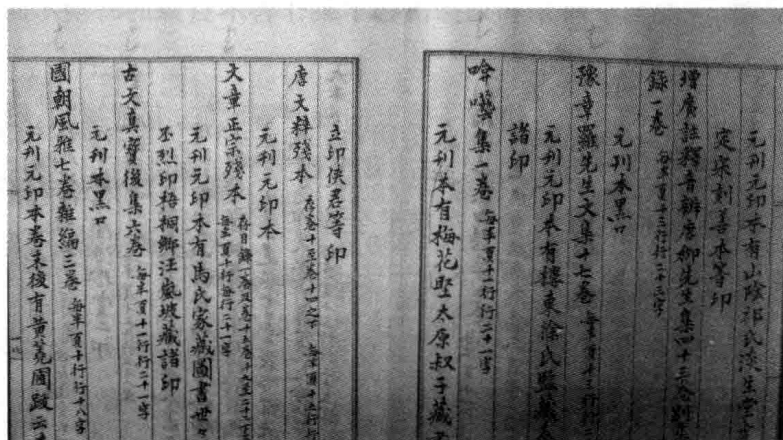 元刊元印本有山陰祁氏淡生堂
定宋刻善本等印
增廣註釋音辨唐柳先生集四十三卷別
錄一卷 每半頁十三行行二十三字
元刊本黑口
豫章羅先生文集十七卷 每半頁十三行行二
元刊元印本有揚東滌氏
諸印
吟囈集一卷 每半頁十一行行二十一字
元刊本有梅花墅太原叔子藏
立印侯君等印
唐文粹殘本 存卷十至卷十一之下 每半頁十五行行
元刊元印本
文章正宗殘本 存目錄一卷及卷十五卷十九至二十二 每半頁十行每行二十一字
元刊元印本有馬氏家藏圖書世
丕烈印梧桐鄉汪嵐坡藏諸印
古文真寶後集六卷 每半頁十一行行二十一字
元刊本黑口
國朝風雅七卷雜編三卷 每半頁十行行十八字
元刊元印本卷末後有黃蕘圃跋云